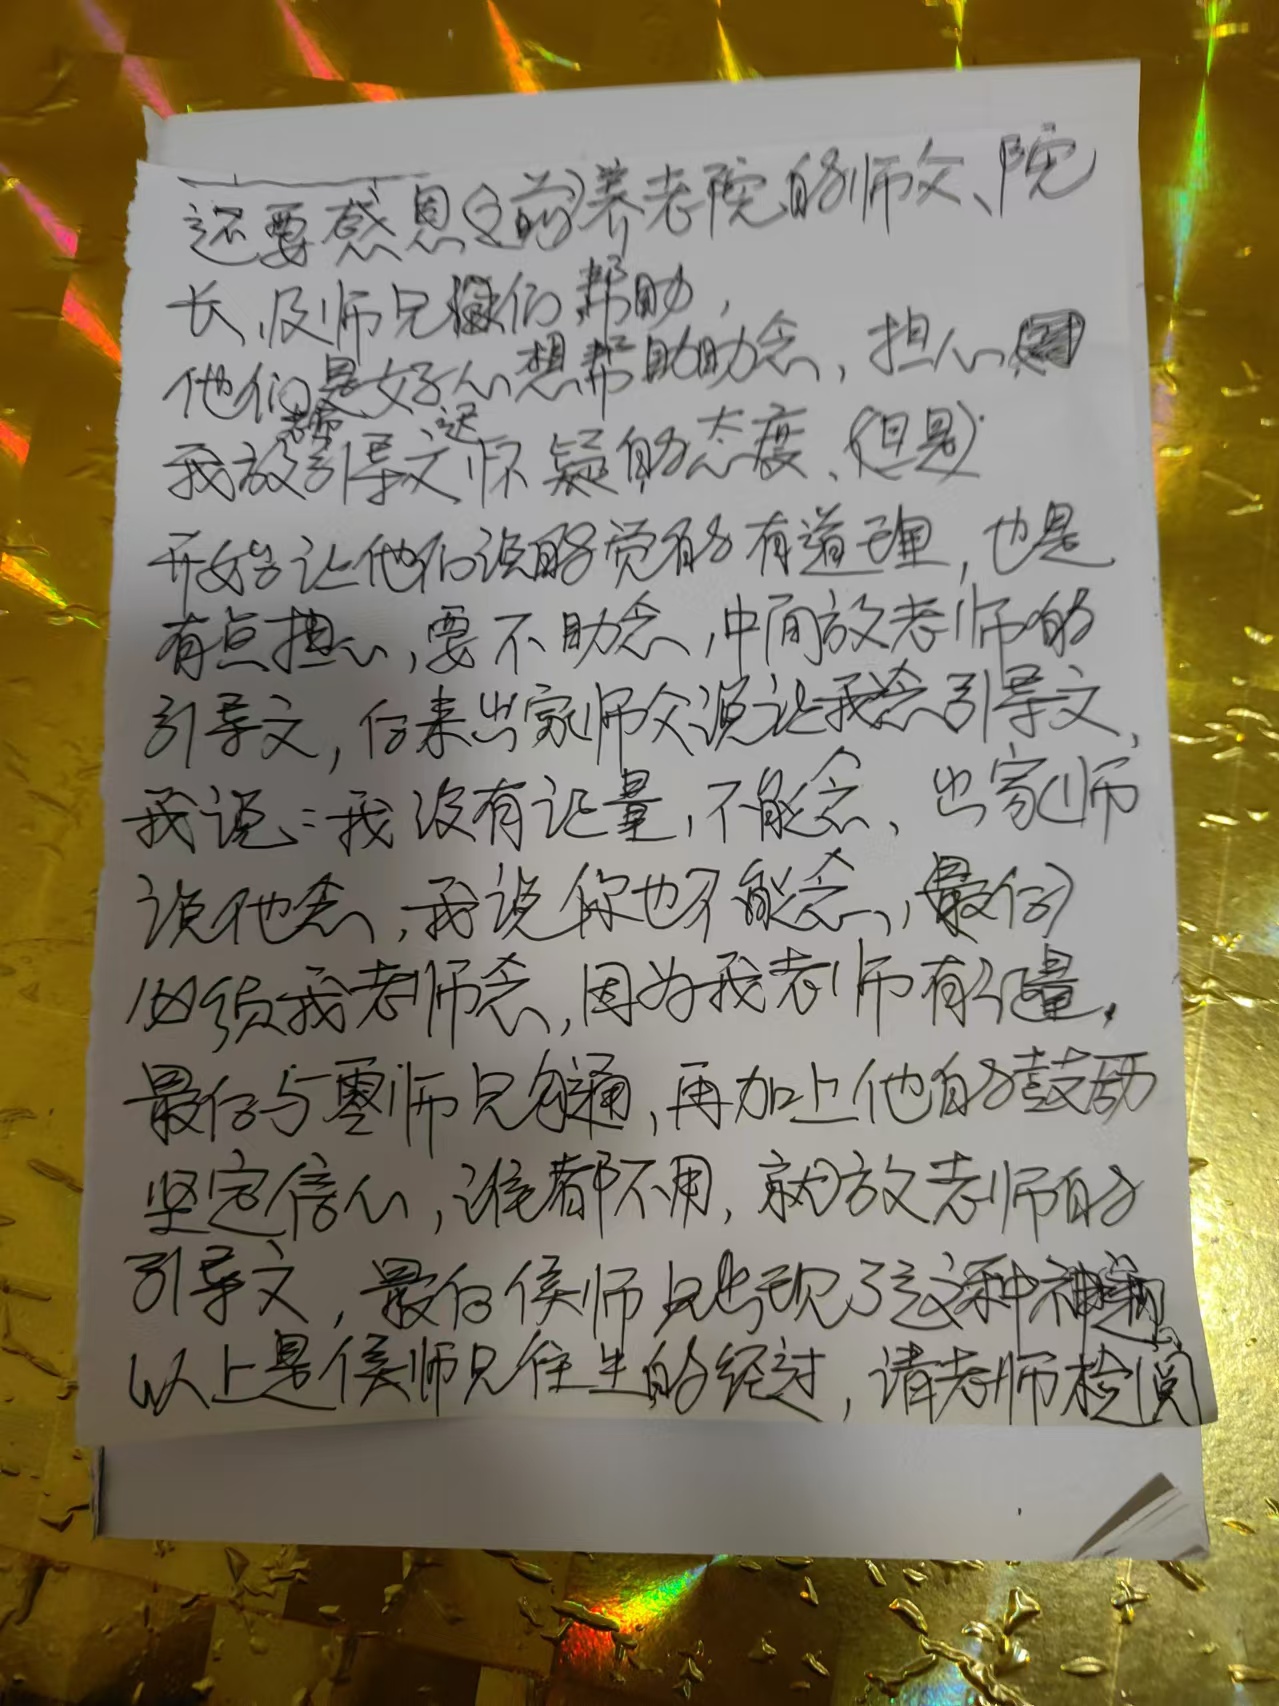 还要感恩(之前)养老院的师父、院
长、及师兄们帮助,
他们是好心想帮助助念,担心
我放老师引导文还怀疑的态度、(但是)
开始让他们说的觉的有道理,也是
有点担心,要不助念,中间放老师的
引导文,后来出家师父说让我念引导文,
我说:我没有证量,不能念、出家师
说他念,我说你也不能念,最后
必须我老师念,因为我老师有证量,
最后与覃师兄沟通,再加上他的鼓励
坚定信心,谁都不用,就放老师的
引导文,最后侯师兄出现了这种神通
以上是侯师兄往生的经过,请老师检阅